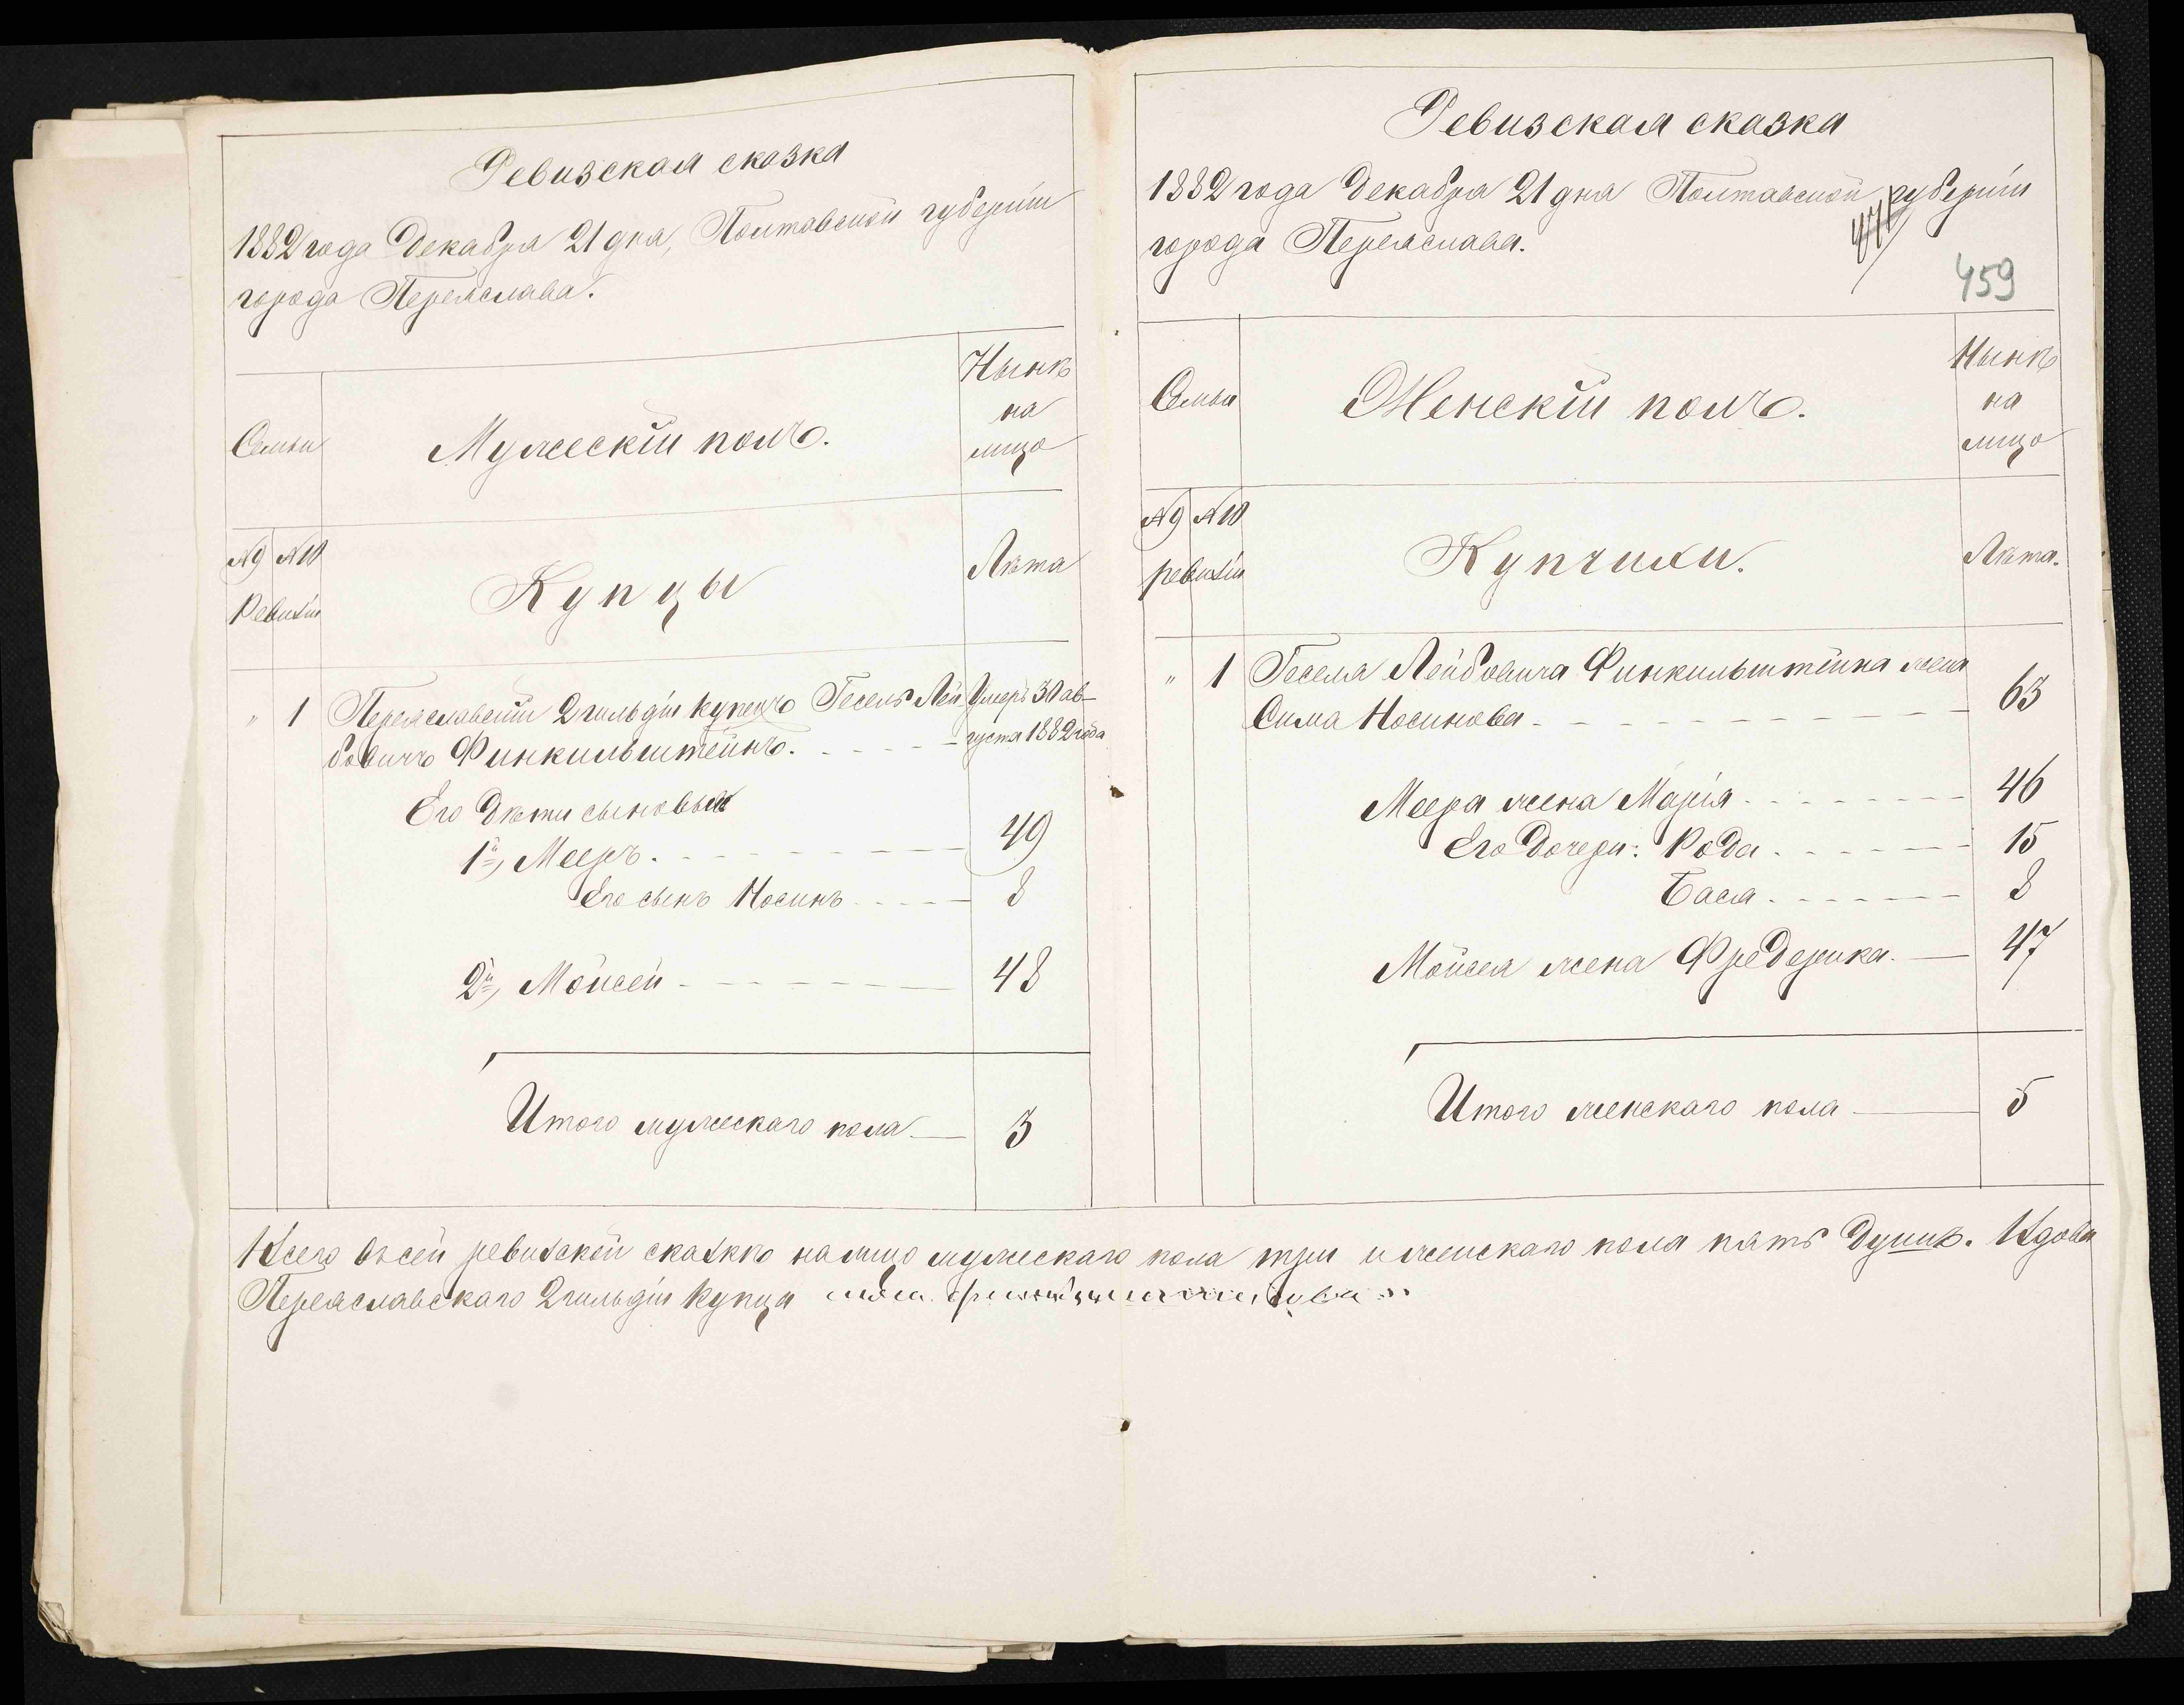 Ревизская сказка
1882 года Декабря 21 дня, Полтавской губернии
города Переяслава.
Семьи
Мужескій полъ.
Нынѣ
на
лицо
№9 №10
Ревизіи
Купцы
Лѣта
" 1 Переяславскій 2 гильдіи купецъ Гесель Лей
бовичъ Финкильштейнъ.
Умеръ 30 ав-
густа 1882 года
Его Дѣти сыновья
1й, Мееръ. 49
Его сынъ Носинъ 8
2й, Мойсей 48
Итого мужескаго пола 3
Ревизская сказка
1882 года Декабря 21 дня Полтавской губерніи
города Переяслава.
459
Семьи
Женскій полъ.
Нынѣ
на
лицо
№9 №10
ревизіи
Купчихи.
Лѣта.
" 1 Геселя Лейбовича Финкильштейна жена
Сима Носинова 63
Меера жена Марія 46
Его Дочери: Рода 15
Бася 8
Мойсея жена Фредерика. 47
Итого женскаго пола 5
Всего въ сей ревизской сказкѣ на лицо мужескаго пола три и женскаго пола пять Душъ. Вдова
Переяславскаго 2 гильдіи Купца